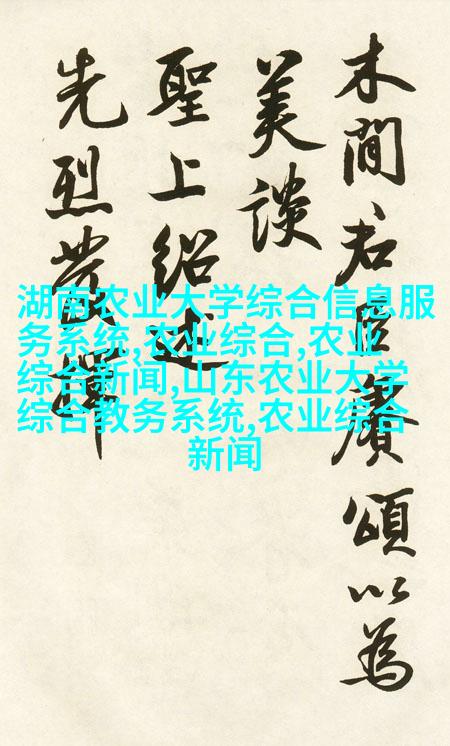 木間君臣賡頌以為
美談
聖上紹述
先烈
湖南农业大学综合信息服
务系统,农业综合,农业
综合新闻,山东农业大学
综合教务系统,农业综合
新闻